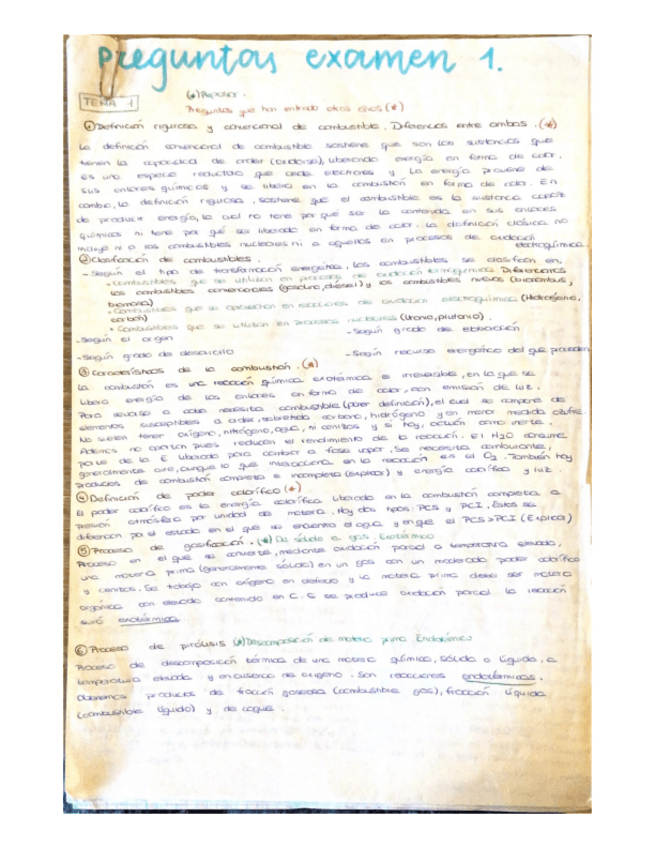 Preguntas examen 1.
TEMA 1
(*) Repasar.
Preguntas que han entrado otros años (*)
① Definición rigurosa y convencional de combustible. Diferencias entre ambas. (*)
La definición convencional de combustible sostiene que son las sustancias que
tienen la capacidad de arder (oxidarse), liberando energía en forma de calor.
Es una especie reductora que cede electrones y la energía proviene de
sus enlaces químicos y se libera en la combustión en forma de calor. En
cambio, la definición rigurosa, sostiene que el combustible es la sustancia capaz
de producir energía, la cual no tiene por qué ser la contenida en sus enlaces
químicos ni tiene por qué ser liberada en forma de calor. La definición clásica no
incluye ni a los combustibles nucleares ni a aquellos en procesos de oxidación
electroquímica
② Clasificación de combustibles.
- Según el tipo de transformación energética, los combustibles se clasifican en:
• Combustibles que se utilizan en procesos de oxidación termoquímica. Diferenciamos
los combustibles convencionales (gasolina, diesel) y los combustibles nuevos (bioetanol,
biomasa)
• Combustibles que se aprovechan en reacciones de oxidación electroquímica (Hidrógeno,
carbón)
• Combustibles que se utilizan en procesos nucleares (Uranio, plutonio).
- Según el origen
- Según grado de elaboración
- Según grado de desarrollo
- Según recurso energético del que proceden
③ Características de la combustión. (*)
La combustión es una reacción química exotérmica e irreversible, en la que se
libera energía de los enlaces en forma de calor, con emisión de luz.
Para llevarse a cabo necesita combustible (poner definición), el cual se compone de
elementos susceptibles a arder, sobretodo carbono, hidrógeno y en menor medida azufre.
No suelen tener oxígeno, nitrógeno, agua, ni cenizas y si hay, actúan como inerte.
Además no aportan pues reducen el rendimiento de la reacción. El H2O consume
parte de la E liberada para cambiar a fase vapor. Se necesita comburente,
generalmente aire, aunque lo que interacciona en la reacción es el O2. También hay
productos de combustión completa e incompleta (explicar) y energía calorífica y luz.
④ Definición de poder calorífico (*)
El poder calorífico es la energía calorífica liberada en la combustión completa a
presión atmosférica por unidad de materia. Hay dos tipos PCS y PCI, éstos se
diferencian por el estado en el que se encuentra el agua y en que el PCS>PCI (Explicar)
⑤ Proceso de gasificación. (*) De sólido a gas. Exotérmico
Proceso en el que se convierte, mediante oxidación parcial a temperatura elevada,
una materia prima (generalmente sólida) en un gas con un moderado poder calorífico
y cenizas. Se trabaja con oxígeno en defecto y la materia prima debe ser materia
orgánica con elevado contenido en C. Si se produce oxidación parcial la reacción
será exotérmica.
⑥ Proceso de pirólisis (*) Descomposición de materia prima. Endotérmico
Proceso de descomposición térmica de una materia química, sólida o líquida, a
temperatura elevada y en ausencia de oxígeno. Son reacciones endotérmicas.
Obtenemos productos de fracción gaseosa (combustible gas), fracción líquida
(combustible líquido) y de coque.